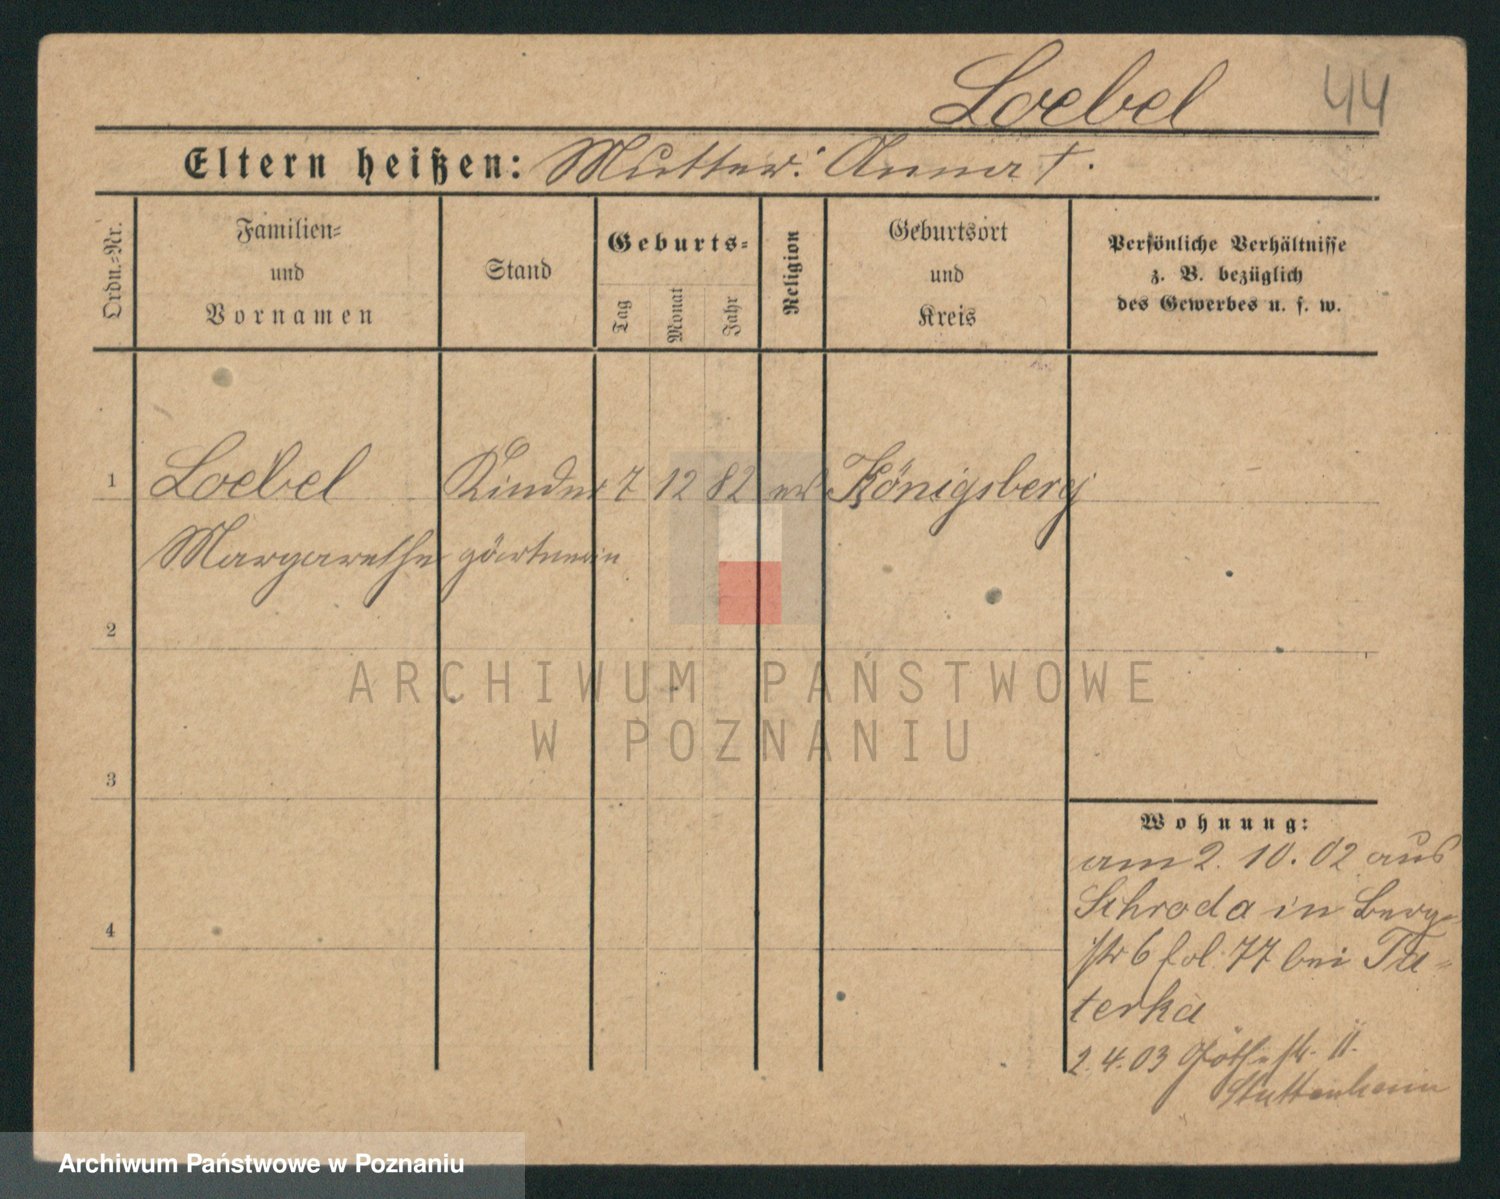 Loebel 44
Eltern heißen: Mutter: Anna †.
Ordn.-Nr.
Familien-
und
Vornamen
Stand
Geburts-
Tag
Monat
Jahr
Religion
Geburtsort
und
Kreis
Persönliche Verhältnisse
z. B. bezüglich
des Gewerbes u. s. w.
1 Loebel Kinder 7 12 82 ev Königsberg
Margarethe gärtnerin
2
3
4
ARCHIWUM PAŃSTWOWE
W POZNANIU
Wohnung:
am 2. 10. 02 aus
Schroda in Berg-
str 6 fol. 77 bei Tu-
terka
2.4.03 Göthestr. 11.
Archiwum Państwowe w Poznaniu